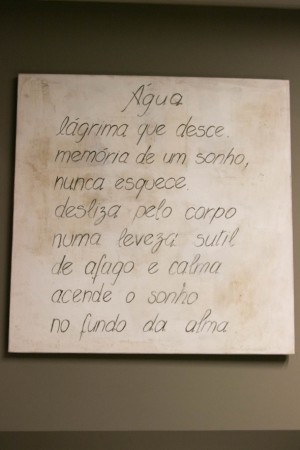 Água
lágrima que desce.
memória de um sonho,
nunca esquece.
desliza pelo corpo
numa leveza sutil
de afago e calma
acende o sonho
no fundo da alma